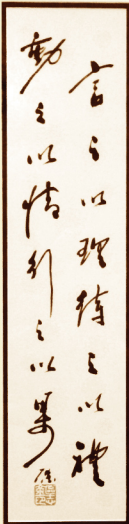 言之以理待之以禮
動之以情行之以